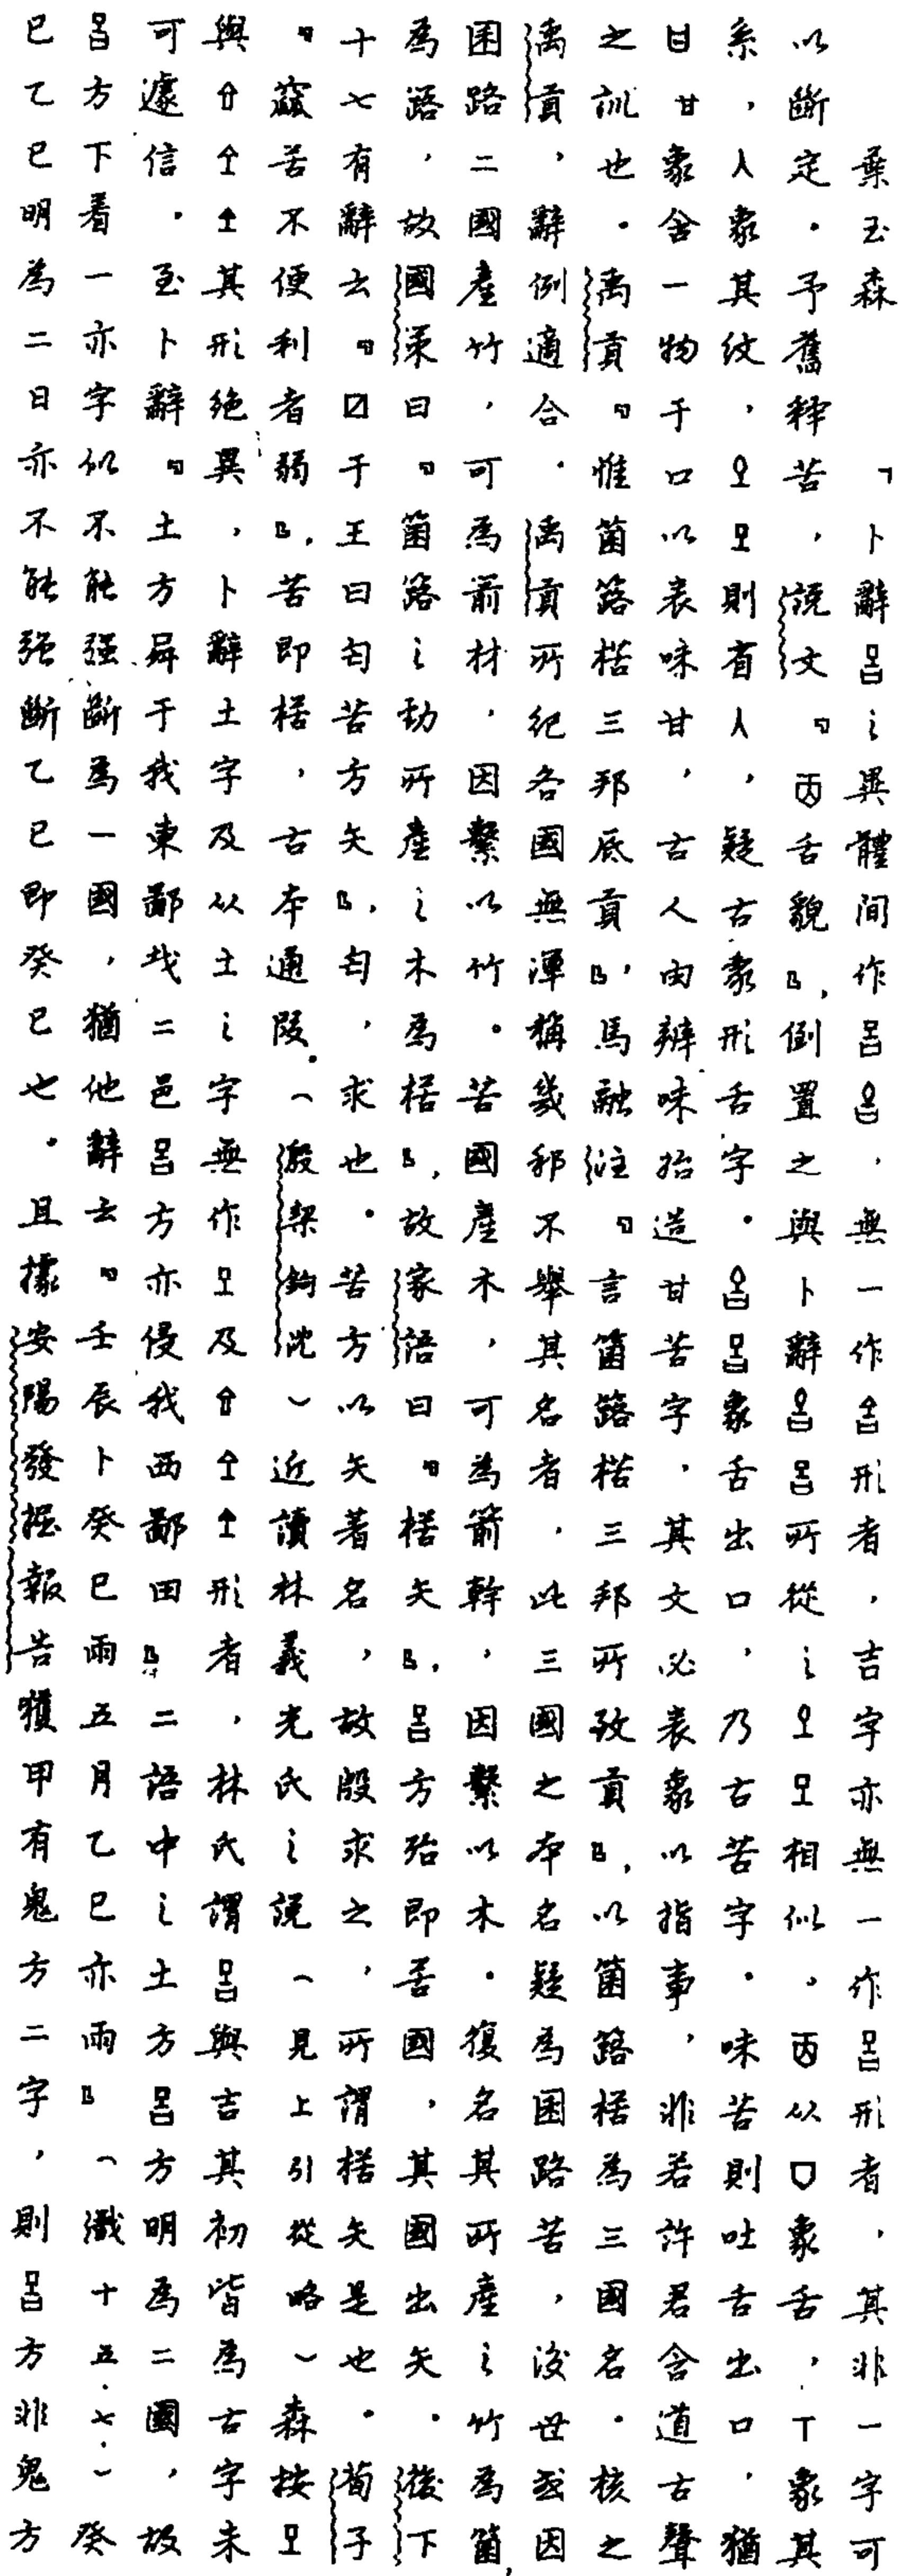 葉玉森　「卜辭之異體間作，無一作形者，吉字亦無一作形者，其非一字可
以斷定。予舊釋苦，說文『㐁舌貌』，倒置之與卜辭所從之相似。㐁从口象舌，丅象其
系，人象其紋，則省人，疑古象形舌字。象舌出口，乃古苦字。味苦則吐舌出口，猶
甘象含一物于口以表味甘，古人由辨味始造甘苦字，其文必表象以指事，非若許君含道古聲
之訓也。禹貢『惟箘簵楛三邦底貢』，馬融注『言箘簵楛三邦所致貢』，以箘簵楛為三國名。核之
禹貢，辭例適合。禹貢所紀各國無渾稱幾邦不舉其名者，此三國之本名疑為困路苦，後世或因
困路二國產竹，可為箭材，因繫以竹。苦國產木，可為箭幹，因繫以木。復名其所產之竹為箘，
為簵，故國策曰『箘簵之勁所產之木為楛』，故家語曰『楛矢』，方殆即苦國，其國出矢。後下
十七有辭云『于王曰匄苦方矢』，匄，求也。苦方以矢著名，故殷求之，所謂楛矢是也。荀子
『竅苦不便利者弱』，苦即楛，古本通叚。（殷契鉤沈）近讀林義光氏之說（見上引從略）森按
與其形絕異，卜辭土字及从土之字無作及形者，林氏謂與吉其初皆為古字未
可遽信。至卜辭『土方于我東鄙𢦏二邑方亦侵我西鄙田』二語中之土方方明為二國，故
方下看一亦字似不能强斷為一國，猶他辭云『壬辰卜癸巳雨五月乙巳亦雨』（鐵十五.七.）癸
巳乙巳明為二日亦不能强斷乙巳即癸巳也。且據安陽發掘報告獲甲有鬼方二字，則方非鬼方